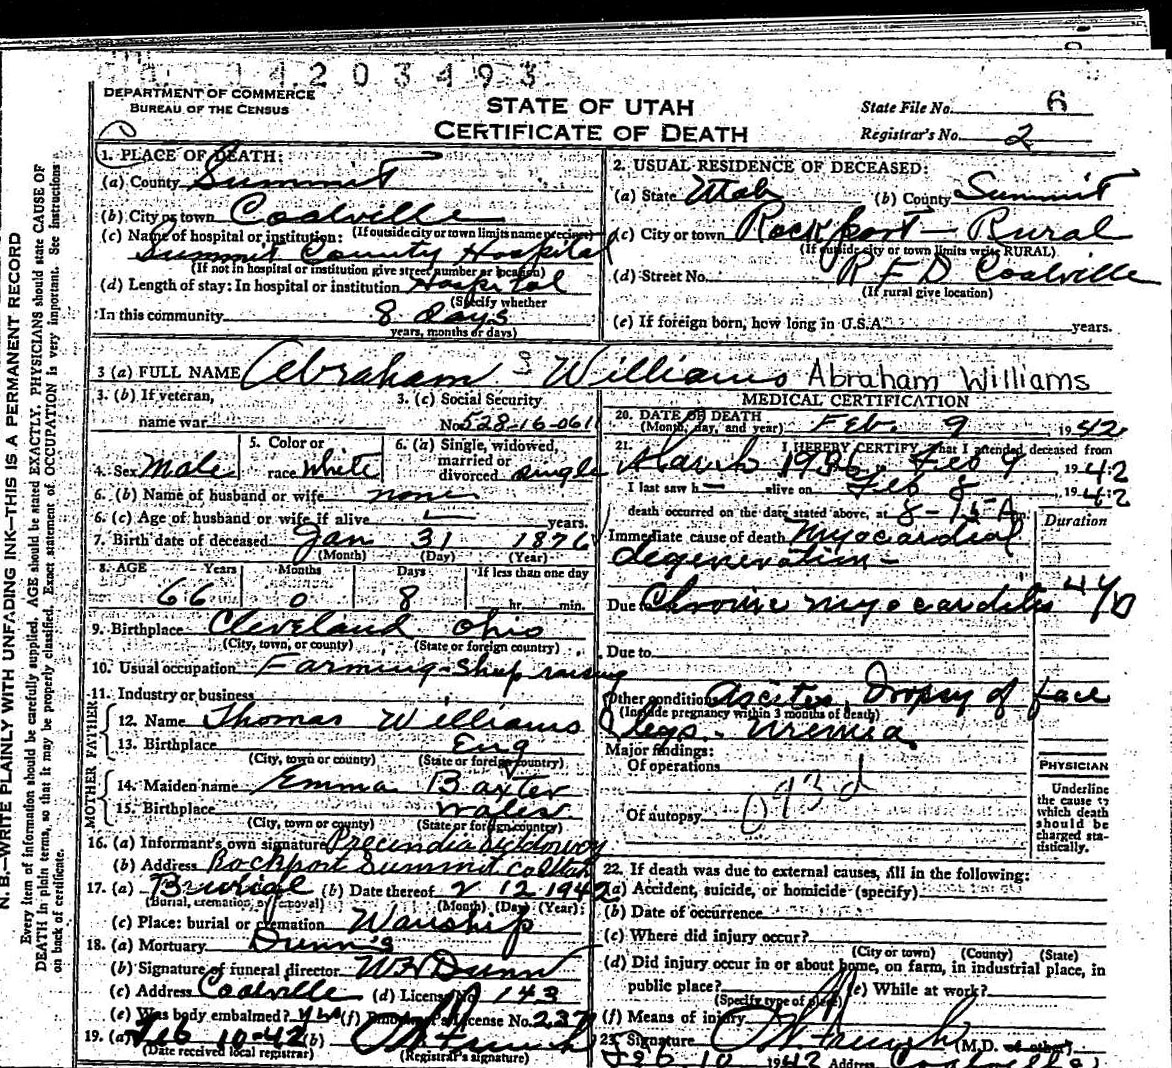 14203493
DEPARTMENT OF COMMERCE
BUREAU OF THE CENSUS
STATE OF UTAH
CERTIFICATE OF DEATH
State File No. 6
Registrar's No. 2
N. B.—WRITE PLAINLY WITH UNFADING INK—THIS IS A PERMANENT RECORD
Every item of information should be carefully supplied. AGE should be stated EXACTLY. PHYSICIANS should state CAUSE OF
DEATH in plain terms, so that it may be properly classified. Exact statement of OCCUPATION is very important. See instructions
on back of certificate.
1. PLACE OF DEATH:
(a) County Summit
(b) City or town Coalville
(If outside city or town limits name precinct)
(c) Name of hospital or institution:
Summit County Hospital
(If not in hospital or institution give street number or location)
(d) Length of stay: In hospital or institution Hospital
(Specify whether
In this community 8 days
years, months or days)
2. USUAL RESIDENCE OF DECEASED:
(a) State Utah (b) County Summit
(c) City or town Rockport - Rural
(If outside city or town limits write RURAL)
(d) Street No. R F D Coalville
(If rural give location)
(e) If foreign born, how long in U.S.A. years.
3 (a) FULL NAME Abraham Williams Abraham Williams
3. (b) If veteran,
name war
3. (c) Social Security
No. 528-16-061
4. Sex Male
5. Color or
race White
6. (a) Single, widowed,
married or
divorced single
6. (b) Name of husband or wife none
6. (c) Age of husband or wife if alive years.
7. Birth date of deceased Jan 31 1876
(Month) (Day) (Year)
8. AGE Years Months Days If less than one day
66 0 8 hr. min.
9. Birthplace Cleveland Ohio
(City, town, or county) (State or foreign country)
10. Usual occupation Farming-Sheep raising
11. Industry or business
FATHER
12. Name Thomas Williams
13. Birthplace Eng
(City, town or county) (State or foreign country)
MOTHER
14. Maiden name Emma Baxter
15. Birthplace Wales
(City, town or county) (State or foreign country)
16. (a) Informant's own signature
(b) Address Rockport Summit Co Utah
17. (a) Burial (b) Date thereof 2 12 1942
(Burial, cremation, or removal) (Month) (Day) (Year)
(c) Place: burial or cremation Wanship
18. (a) Mortuary Dunn's
(b) Signature of funeral director W H Dunn
(c) Address Coalville (d) License No. 143
(e) Was body embalmed? yes (f) Embalmer's License No. 237
19. (a) Feb 10-42 (b)
(Date received local registrar) (Registrar's signature)
MEDICAL CERTIFICATION
20. DATE OF DEATH
(Month, day, and year) Feb. 9 1942
21. I HEREBY CERTIFY that I attended deceased from
March 1936, Feb 9 1942
I last saw h— alive on Feb 8 1942
death occurred on the date stated above, at 8-15-A m.
Duration
Immediate cause of death Myocardial
degeneration -
Due to Chronic myocarditis
Due to
Other conditions Ascites, Dropsy of face
(Include pregnancy within 3 months of death)
legs - Uremia
Major findings:
Of operations
093d
Of autopsy
PHYSICIAN
Underline
the cause to
which death
should be
charged sta-
tistically.
22. If death was due to external causes, fill in the following:
(a) Accident, suicide, or homicide (specify)
(b) Date of occurrence
(c) Where did injury occur?
(City or town) (County) (State)
(d) Did injury occur in or about home, on farm, in industrial place, in
public place? (e) While at work?
(Specify type of place)
(f) Means of injury
23. Signature (M.D. or other)
Feb 10 1942 Address Coalville